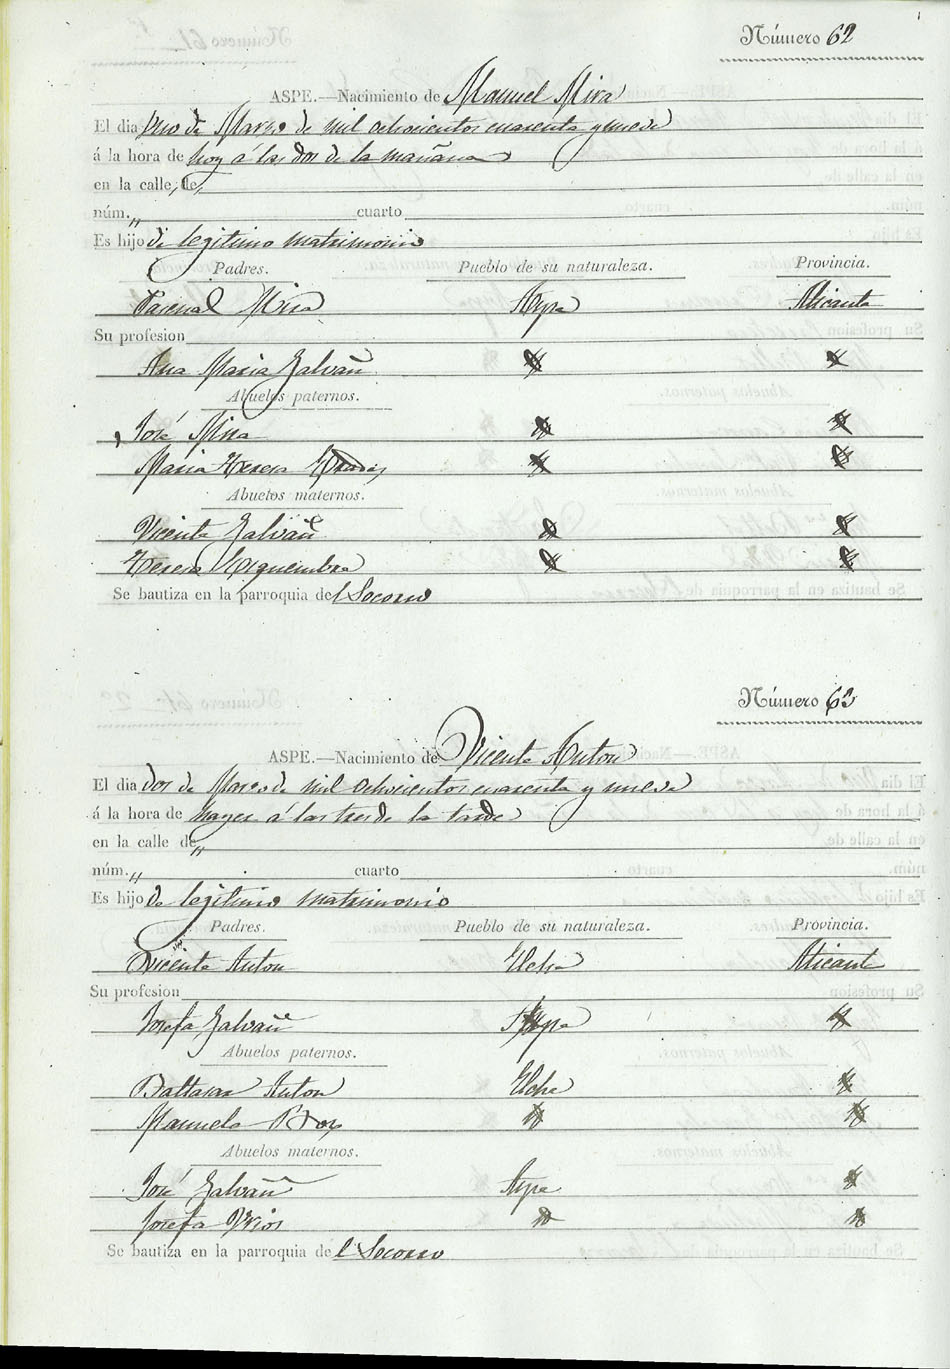 Número 62
ASPE.—Nacimiento de Manuel Mira
El dia Uno de Marzo de mil ochocientos cuarenta y nueve
á la hora de hoy á las dos de la mañana
en la calle, de
núm. „ cuarto
Es hijo de legitimo matrimonio
Padres. Pueblo de su naturaleza. Provincia.
Pascual Mira Aspe Alicante
Su profesion
Ana Maria Galvañ
Abuelos paternos.
José Mira
Maria Teresa
Abuelos maternos.
Vicente Galvañ
Teresa
Se bautiza en la parroquia del Socorro
Número 63
ASPE.—Nacimiento de Vicente Anton
El dia dos de Marzo de mil ochocientos cuarenta y nueve
á la hora de á las tres de la tarde
en la calle de „
núm. „ cuarto
Es hijo de legitimo matrimonio
Padres. Pueblo de su naturaleza. Provincia.
Vicente Anton Elche Alicante
Su profesion
Josefa Galvañ Aspe
Abuelos paternos.
Baltasar Anton Elche
Manuela
Abuelos maternos.
José Galvañ Aspe
Josefa
Se bautiza en la parroquia del Socorro